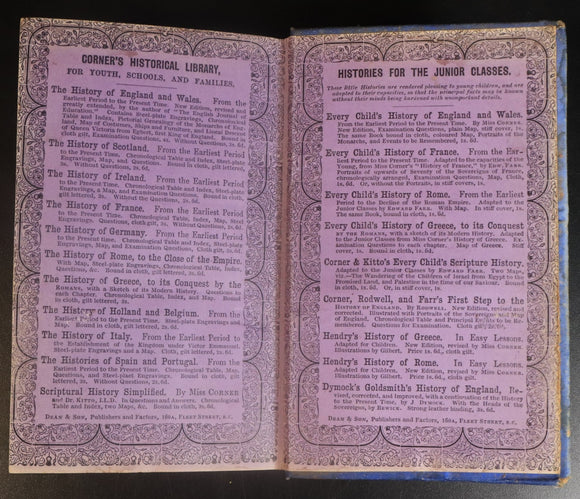 CORNER'S HISTORICAL LIBRARY,
FOR YOUTH, SCHOOLS, AND FAMILIES.
The History of England and Wales. From the
Earliest Period to the Present Time. New Edition, revised and
greatly extended, by the author of "The English Journal of
Education." Contains Steel-plate Engravings, Chronological
Table and Index, Pictorial Genealogy of the Monarchs of Eng-
land, Map of Conquests, Ships and Furniture, and Lineal Descent
of Queen Victoria from Egbert, first King of England. Bound in
cloth gilt, Examination Questions, 4s. Without Questions,
The History of Scotland. From the Earliest Period
to the Present Time. Chronological Table and Index, Steel-plate
Engravings, Map, and Questions. Bound in cloth, gilt lettered,
3s. Without Questions, 2s. 6d.
The History of Ireland. From the Earliest Period
to the Present Time. Chronological Table and Index, Steel-plate
Engravings, a Map, and Examination Questions. Bound in cloth,
gilt lettered, 3s. Without Questions, 2s. 6d.
The History of France. From the Earliest Period
to the Present Time. Chronological Table and Index, Map, Steel
Engravings. Questions, cloth gilt, 3s. Without Questions, 2s. 6d.
The History of Germany. From the Earliest Period
to the Present Time. Chronological Table and Index, Steel-plate
Engravings, a Map, and Examination Questions. Bound in cloth,
gilt lettered,
The History of Rome, to the Close of the Empire.
With Map, Steel-plate Engravings, Chronological Table, Index,
Questions, &c. Bound in cloth, gilt lettered,
The History of Greece, to its Conquest by the
ROMANS, with a Sketch of its Modern History. Questions to
each Chapter. Chronological Table and Index, and Map. Bound
in cloth, gilt lettered, 3s.
The History of Holland and Belgium. From the
Earliest Period to the Present Time. Steel-plate Engravings and
Map. Bound in cloth, gilt lettered, 2s. 6d.
The History of Italy. From the Earliest Period to
the Establishment of the Kingdom under Victor Emmanuel.
Steel-plate Engravings and a Map. Cloth, gilt lettered,
The Histories of Spain and Portugal. From the
Earliest Period to the Present Time. Chronological Table, Map,
Questions, and Steel-plate Engravings. Bound in cloth, gilt
lettered, 3s. Without Questions, 2s. 6d.
Scriptural History Simplified. By Miss CORNER
and Dr. KITTO, LL.D. In Questions and Answers. Chronological
Table and Index, two Maps, &c. Bound in cloth, 3s. 6d.
DEAN & SON, Publishers and Factors, 160A, FLEET STREET, E.C.
HISTORIES FOR THE JUNIOR CLASSES.
These little Histories are rendered pleasing to young children, and are
adapted to their capacities, so that the principal facts may be known
without their minds being burdened with unimportant details.
Every Child's History of England and Wales.
From the Earliest Period to the Present Time. By Miss CORNER.
New Edition, Examination Questions, plain Map, stiff cover, 1s.
The Same Book bound in cloth, coloured Map, Portraits of the
Monarchs, and Events to be Remembered, 1s. 6d.
Every Child's History of France. From the Ear-
liest Period to the Present Time. Adapted to the capacities of the
Young, from Miss Corner's "History of France," by EDWD. FARR.
Portraits of upwards of Seventy of the Sovereigns of France,
chronologically arranged, Examination Questions, Map, Cloth,
1s. 6d. Or, without the Portraits, in stiff covers, 1s.
Every Child's History of Rome. From the Earliest
Period to the Decline of the Roman Empire. Adapted to the
Junior Classes by EDWARD FARR. With Map. In stiff cover, 1s.
The same Book, bound in cloth, 1s. 6d.
Every Child's History of Greece, to its Conquest
BY THE ROMANS, with a sketch of its Modern History. Adapted to
the Junior Classes from Miss Corner's History of Greece. Ex-
amination Questions to each chapter. Map of Greece. Stiff
cover, 1s. Bound in cloth, 1s. 6d.
Corner & Kitto's Every Child's Scripture History.
Adapted to the Junior Classes by EDWARD FARR. Two Maps,
viz.—The Wandering of the Children of Israel from Egypt to the
Promised Land, and Palestine in the time of our Saviour. Bound
in cloth, 1s. 6d. Or, in stiff cover, 1s.
Corner, Rodwell, and Farr's First Step to the
HISTORY OF ENGLAND. By RODWELL. New Edition, revised and
corrected. Illustrated with Portraits of the Sovereigns and Map
of England. Chronological Table and Principal Events to be Re-
membered. Questions for Examination. Cloth gilt, 2s. 6d.
Hendry's History of Greece. In Easy Lessons.
Adapted for Children. New Edition, revised by Miss CORNER.
Illustrations by Gilbert. Price 1s., cloth gilt.
Hendry's History of Rome. In Easy Lessons.
Adapted for Children. New Edition, revised by Miss CORNER.
Illustrations by Gilbert. Price 1s., cloth gilt.
Dymock's Goldsmith's History of England, Re-
vised, corrected, and improved, with a continuation of the History
to the Present Time, by J. DYMOCK. With the Heads of the
Sovereigns, by BEWICK. Strong leather binding, 3s. 6d.
DEAN & SON, Publishers and Factors, 160A, FLEET STREET, E.C.